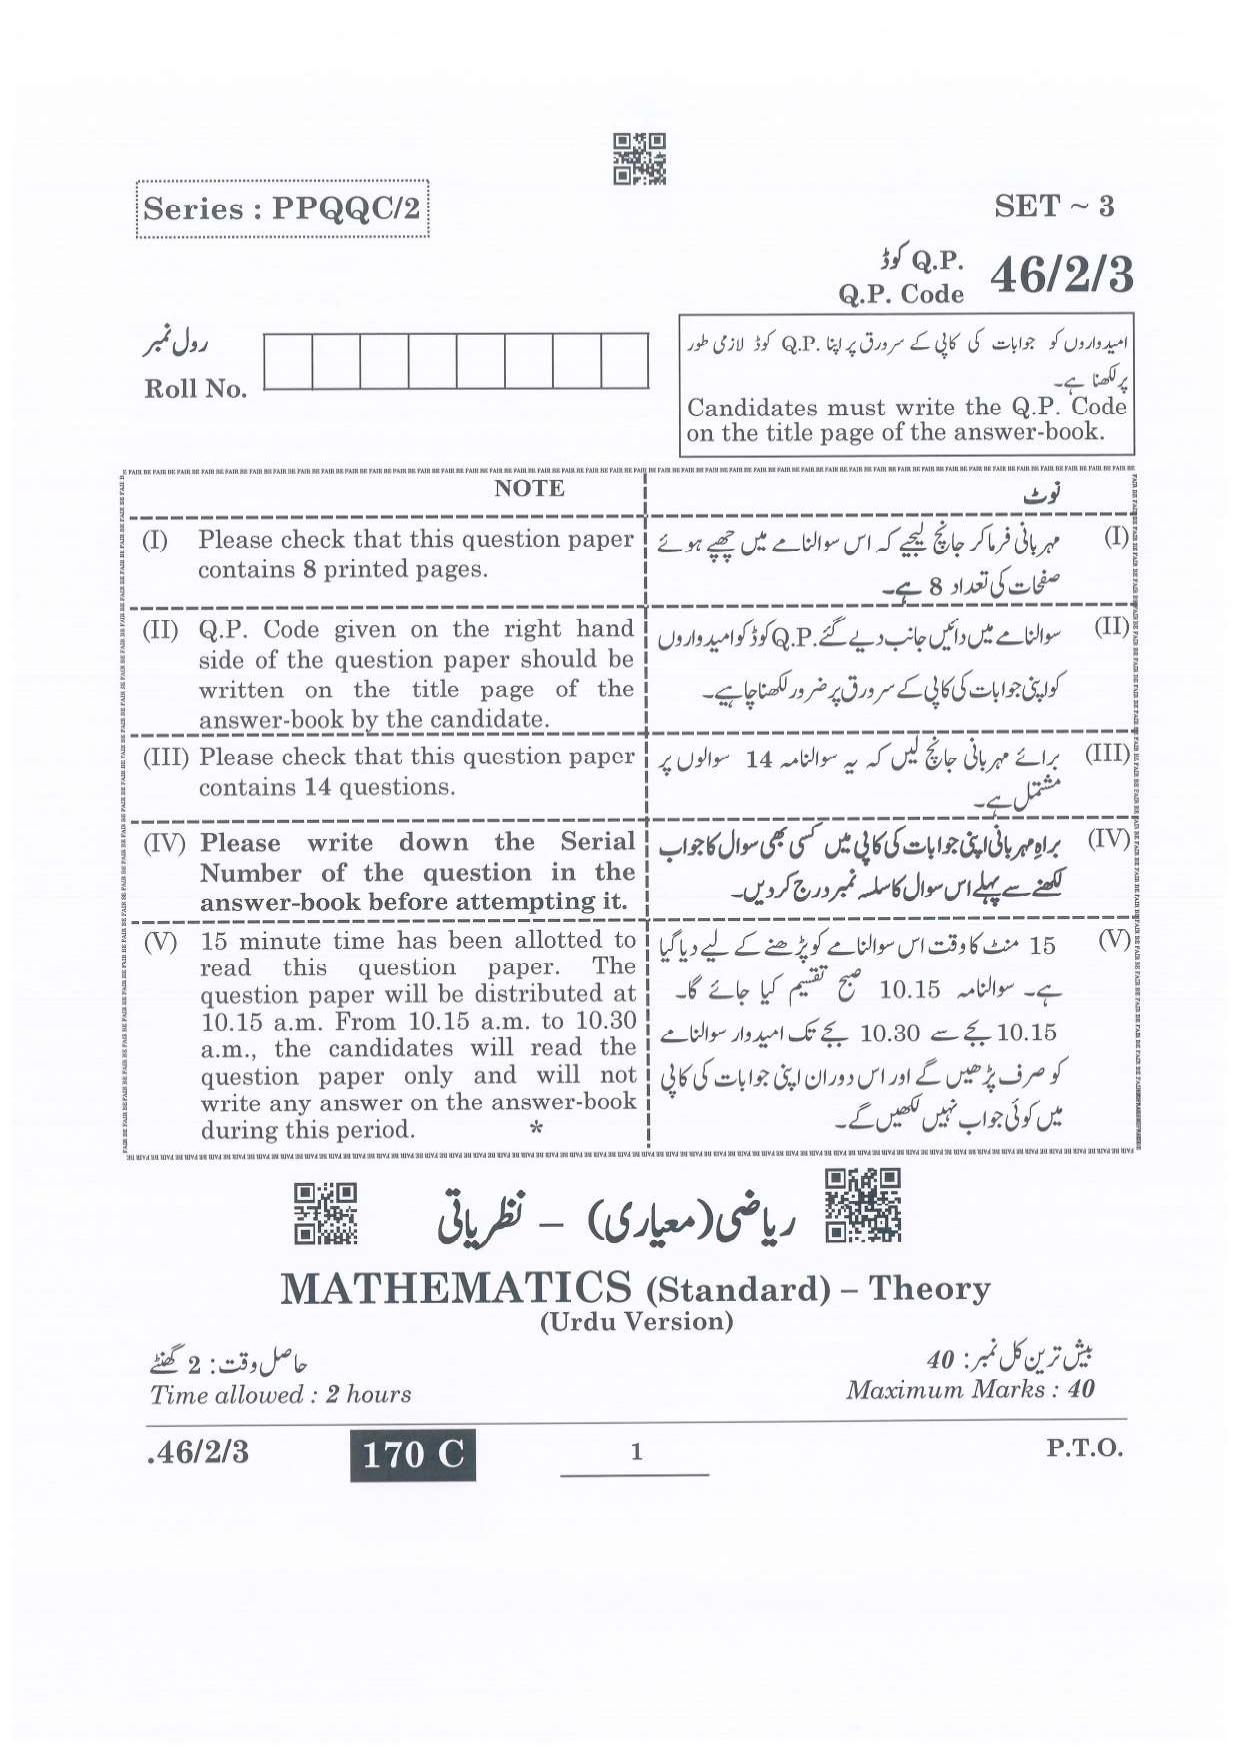 Series : PPQQC/2
SET ~ 3
Q.P. کوڈ
Q.P. Code
46/2/3
رول نمبر
Roll No.
امیدواروں کو جوابات کی کاپی کے سرورق پر اپنا Q.P. کوڈ لازمی طور
پر لکھنا ہے۔
Candidates must write the Q.P. Code
on the title page of the answer-book.
NOTE
(I) Please check that this question paper
contains 8 printed pages.
(II) Q.P. Code given on the right hand
side of the question paper should be
written on the title page of the
answer-book by the candidate.
(III) Please check that this question paper
contains 14 questions.
(IV) Please write down the Serial
Number of the question in the
answer-book before attempting it.
(V) 15 minute time has been allotted to
read this question paper. The
question paper will be distributed at
10.15 a.m. From 10.15 a.m. to 10.30
a.m., the candidates will read the
question paper only and will not
write any answer on the answer-book
during this period. *
نوٹ
(I) مہربانی فرماکر جانچ لیجیے کہ اس سوالنامے میں چھپے ہوئے
صفحات کی تعداد 8 ہے۔
(II) سوالنامے میں دائیں جانب دیے گئے Q.P. کوڈ کو امیدواروں
کو اپنی جوابات کی کاپی کے سرورق پر ضرور لکھنا چاہیے۔
(III) برائے مہربانی جانچ لیں کہ یہ سوالنامہ 14 سوالوں پر
مشتمل ہے۔
(IV) براہِ مہربانی اپنی جوابات کی کاپی میں کسی بھی سوال کا جواب
لکھنے سے پہلے اس سوال کا سلسلہ نمبر درج کردیں۔
(V) 15 منٹ کا وقت اس سوالنامے کو پڑھنے کے لیے دیا گیا
ہے۔ سوالنامہ 10.15 صبح تقسیم کیا جائے گا۔
10.15 بجے سے 10.30 بجے تک امیدوار سوالنامے
کو صرف پڑھیں گے اور اس دوران اپنی جوابات کی کاپی
میں کوئی جواب نہیں لکھیں گے۔
ریاضی (معیاری) – نظریاتی
MATHEMATICS (Standard) – Theory
(Urdu Version)
حاصل وقت: 2 گھنٹے
بیش ترین کل نمبر: 40
Time allowed : 2 hours
Maximum Marks : 40
.46/2/3
170 C
1
P.T.O.